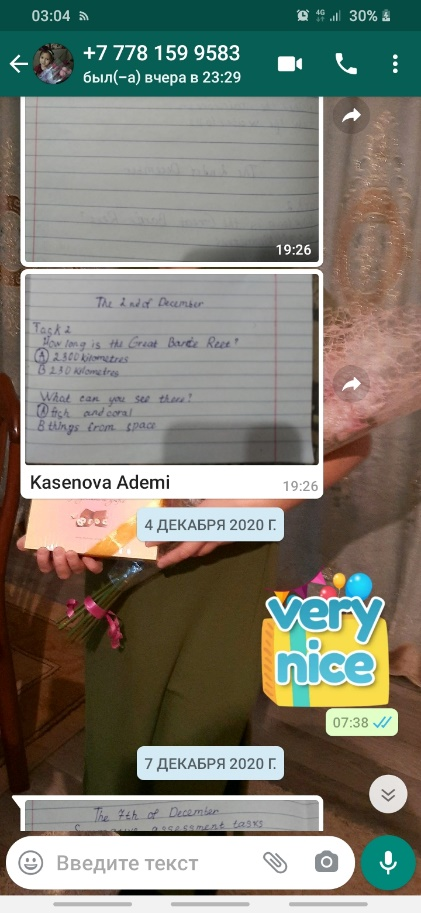 03:04
4G
30%
+7 778 159 9583
был(–а) вчера в 23:29
19:26
The 2nd of December
Task 2
How long is the Great Barde Reer?
A 2300 kilometres
B 230 kilometres
What can you see there?
A fish and coral
B things from space
Kasenova Ademi
19:26
4 ДЕКАБРЯ 2020 Г.
very
nice
07:38
7 ДЕКАБРЯ 2020 Г.
The 7th of December
assessment tasks
Введите текст